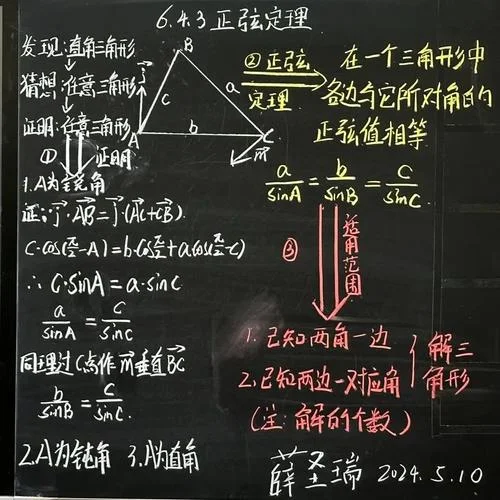 6.4.3 正弦定理
发现:直角三角形
猜想:任意三角形
证明:任意三角形
① 证明
1.A为锐角
证:j·AB=j·(AC+CB)
c·cos(π/2-A)=b·cosπ/2+a·cos(π/2-C)
∴ c·sinA=a·sinC
a/sinA=c/sinC
同理过C点作m垂直BC
b/sinB=c/sinC.
2.A为钝角 3.A为直角
B
j
c
a
A
b
C
m
② 正弦
定理
在一个三角形中
各边与它所对角的
正弦值相等
a/sinA=b/sinB=c/sinC.
③ 适用范围
1.已知两角一边
2.已知两边一对应角
解三
角形
(注:解的个数)
薛圣瑞 2024.5.10